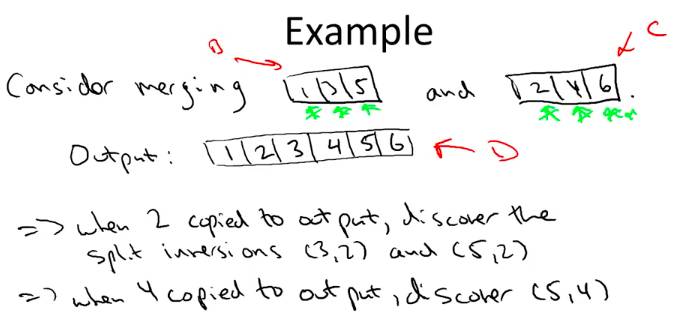 Example
B
C
Consider merging 1 3 5 and 2 4 6.
Output: 1 2 3 4 5 6
D
=> when 2 copied to output, discover the
split inversions (3,2) and (5,2)
=> when 4 copied to output, discover (5,4)